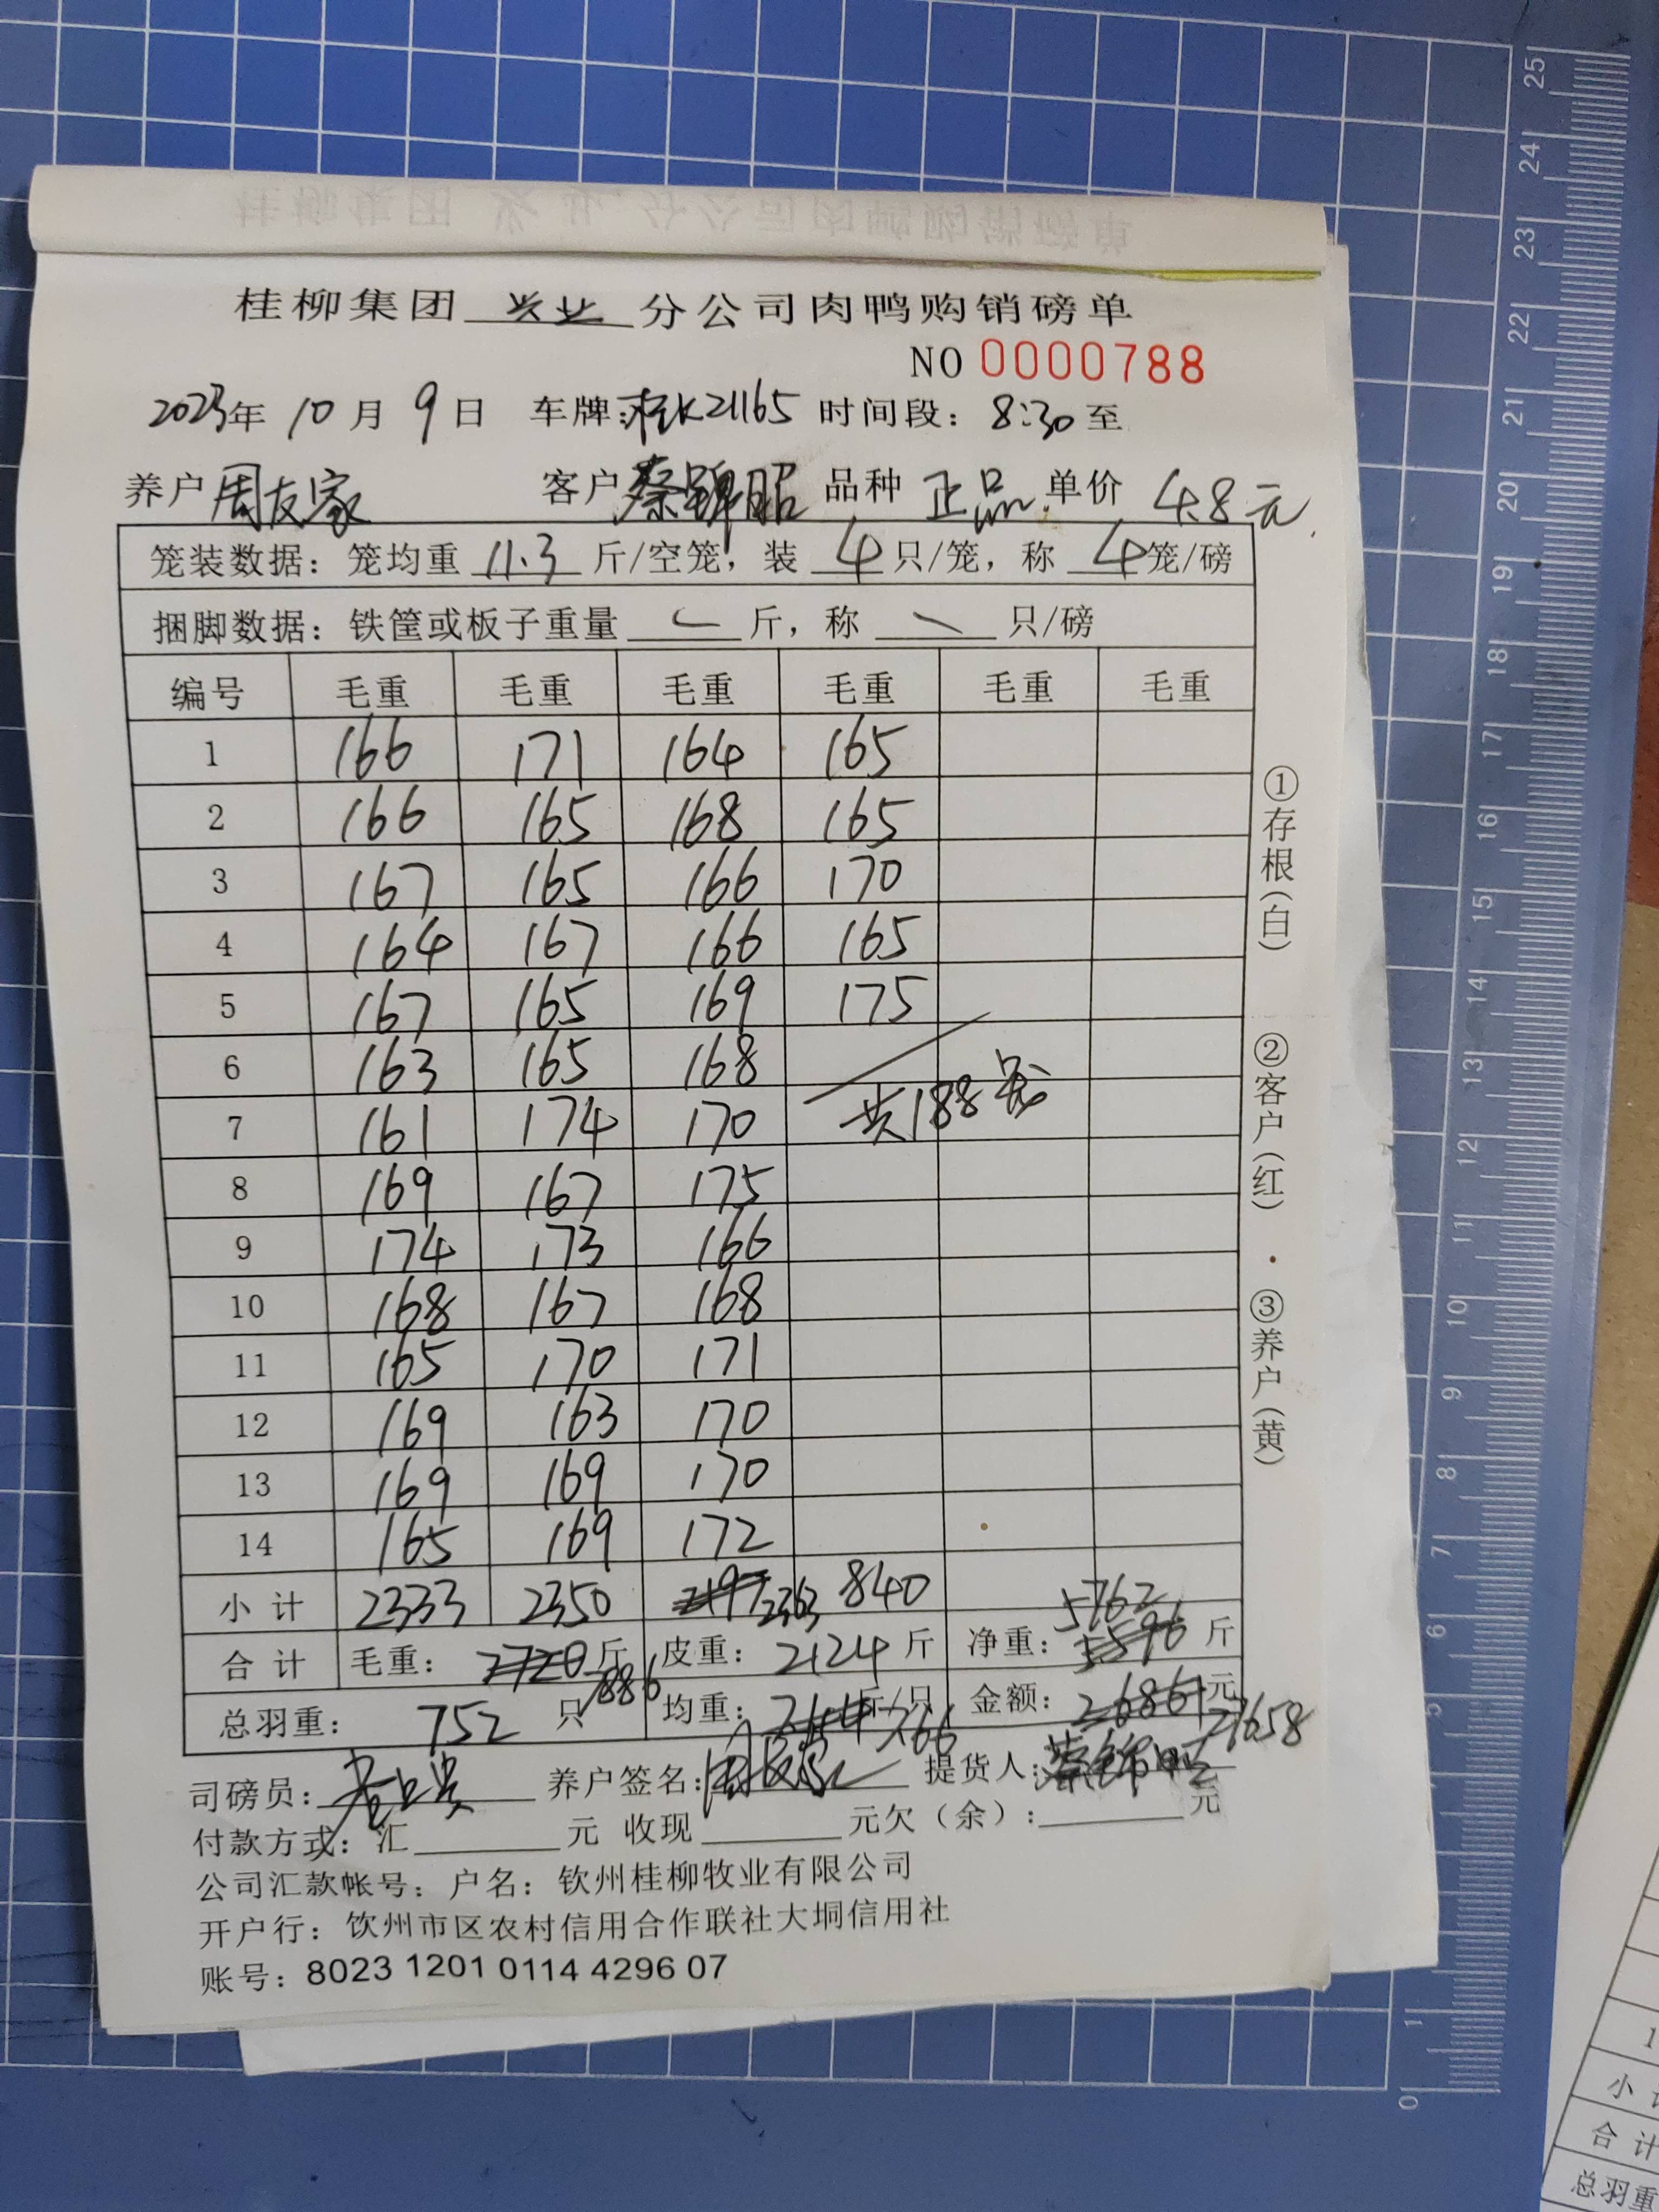 桂柳集团 兴业 分公司肉鸭购销磅单
NO 0000788
2023年 10 月 9 日 车牌:桂K21165 时间段: 8:30 至
养户 周友家 客户 蔡锦昭 品种 正品 单价 4.8元
笼装数据: 笼均重 11.3 斤/空笼, 装 4 只/笼, 称 4 笼/磅
捆脚数据: 铁筐或板子重量 斤, 称 只/磅
编号 毛重 毛重 毛重 毛重 毛重 毛重
1 166 171 164 165
2 166 165 168 165
3 167 165 166 170
4 164 167 166 165
5 167 165 169 175
6 163 165 168
7 161 174 170 共188笼
8 169 167 175
9 174 173 166
10 168 167 168
11 165 170 171
12 169 163 170
13 169 169 170
14 165 169 172
小 计 2333 2350 2197 2363 840
合 计 毛重: 7720 斤 7886 皮重: 2124 斤 净重: 5596 5762 斤
总羽重: 752 只 均重: 7.44 斤/只 7.66 金额: 26861 元 27658
司磅员: 养户签名: 周友家 提货人: 蔡锦昭
付款方式: 汇 元 收现 元欠(余): 元
公司汇款帐号: 户名: 钦州桂柳牧业有限公司
开户行: 饮州市区农村信用合作联社大垌信用社
账号: 8023 1201 0114 4296 07
①存根(白)
②客户(红)
③养户(黄)
25
24
23
22
21
20
19
18
17
16
15
14
13
12
11
10
9
8
7
6
5
1
0
1
小 计
合 计
总羽重